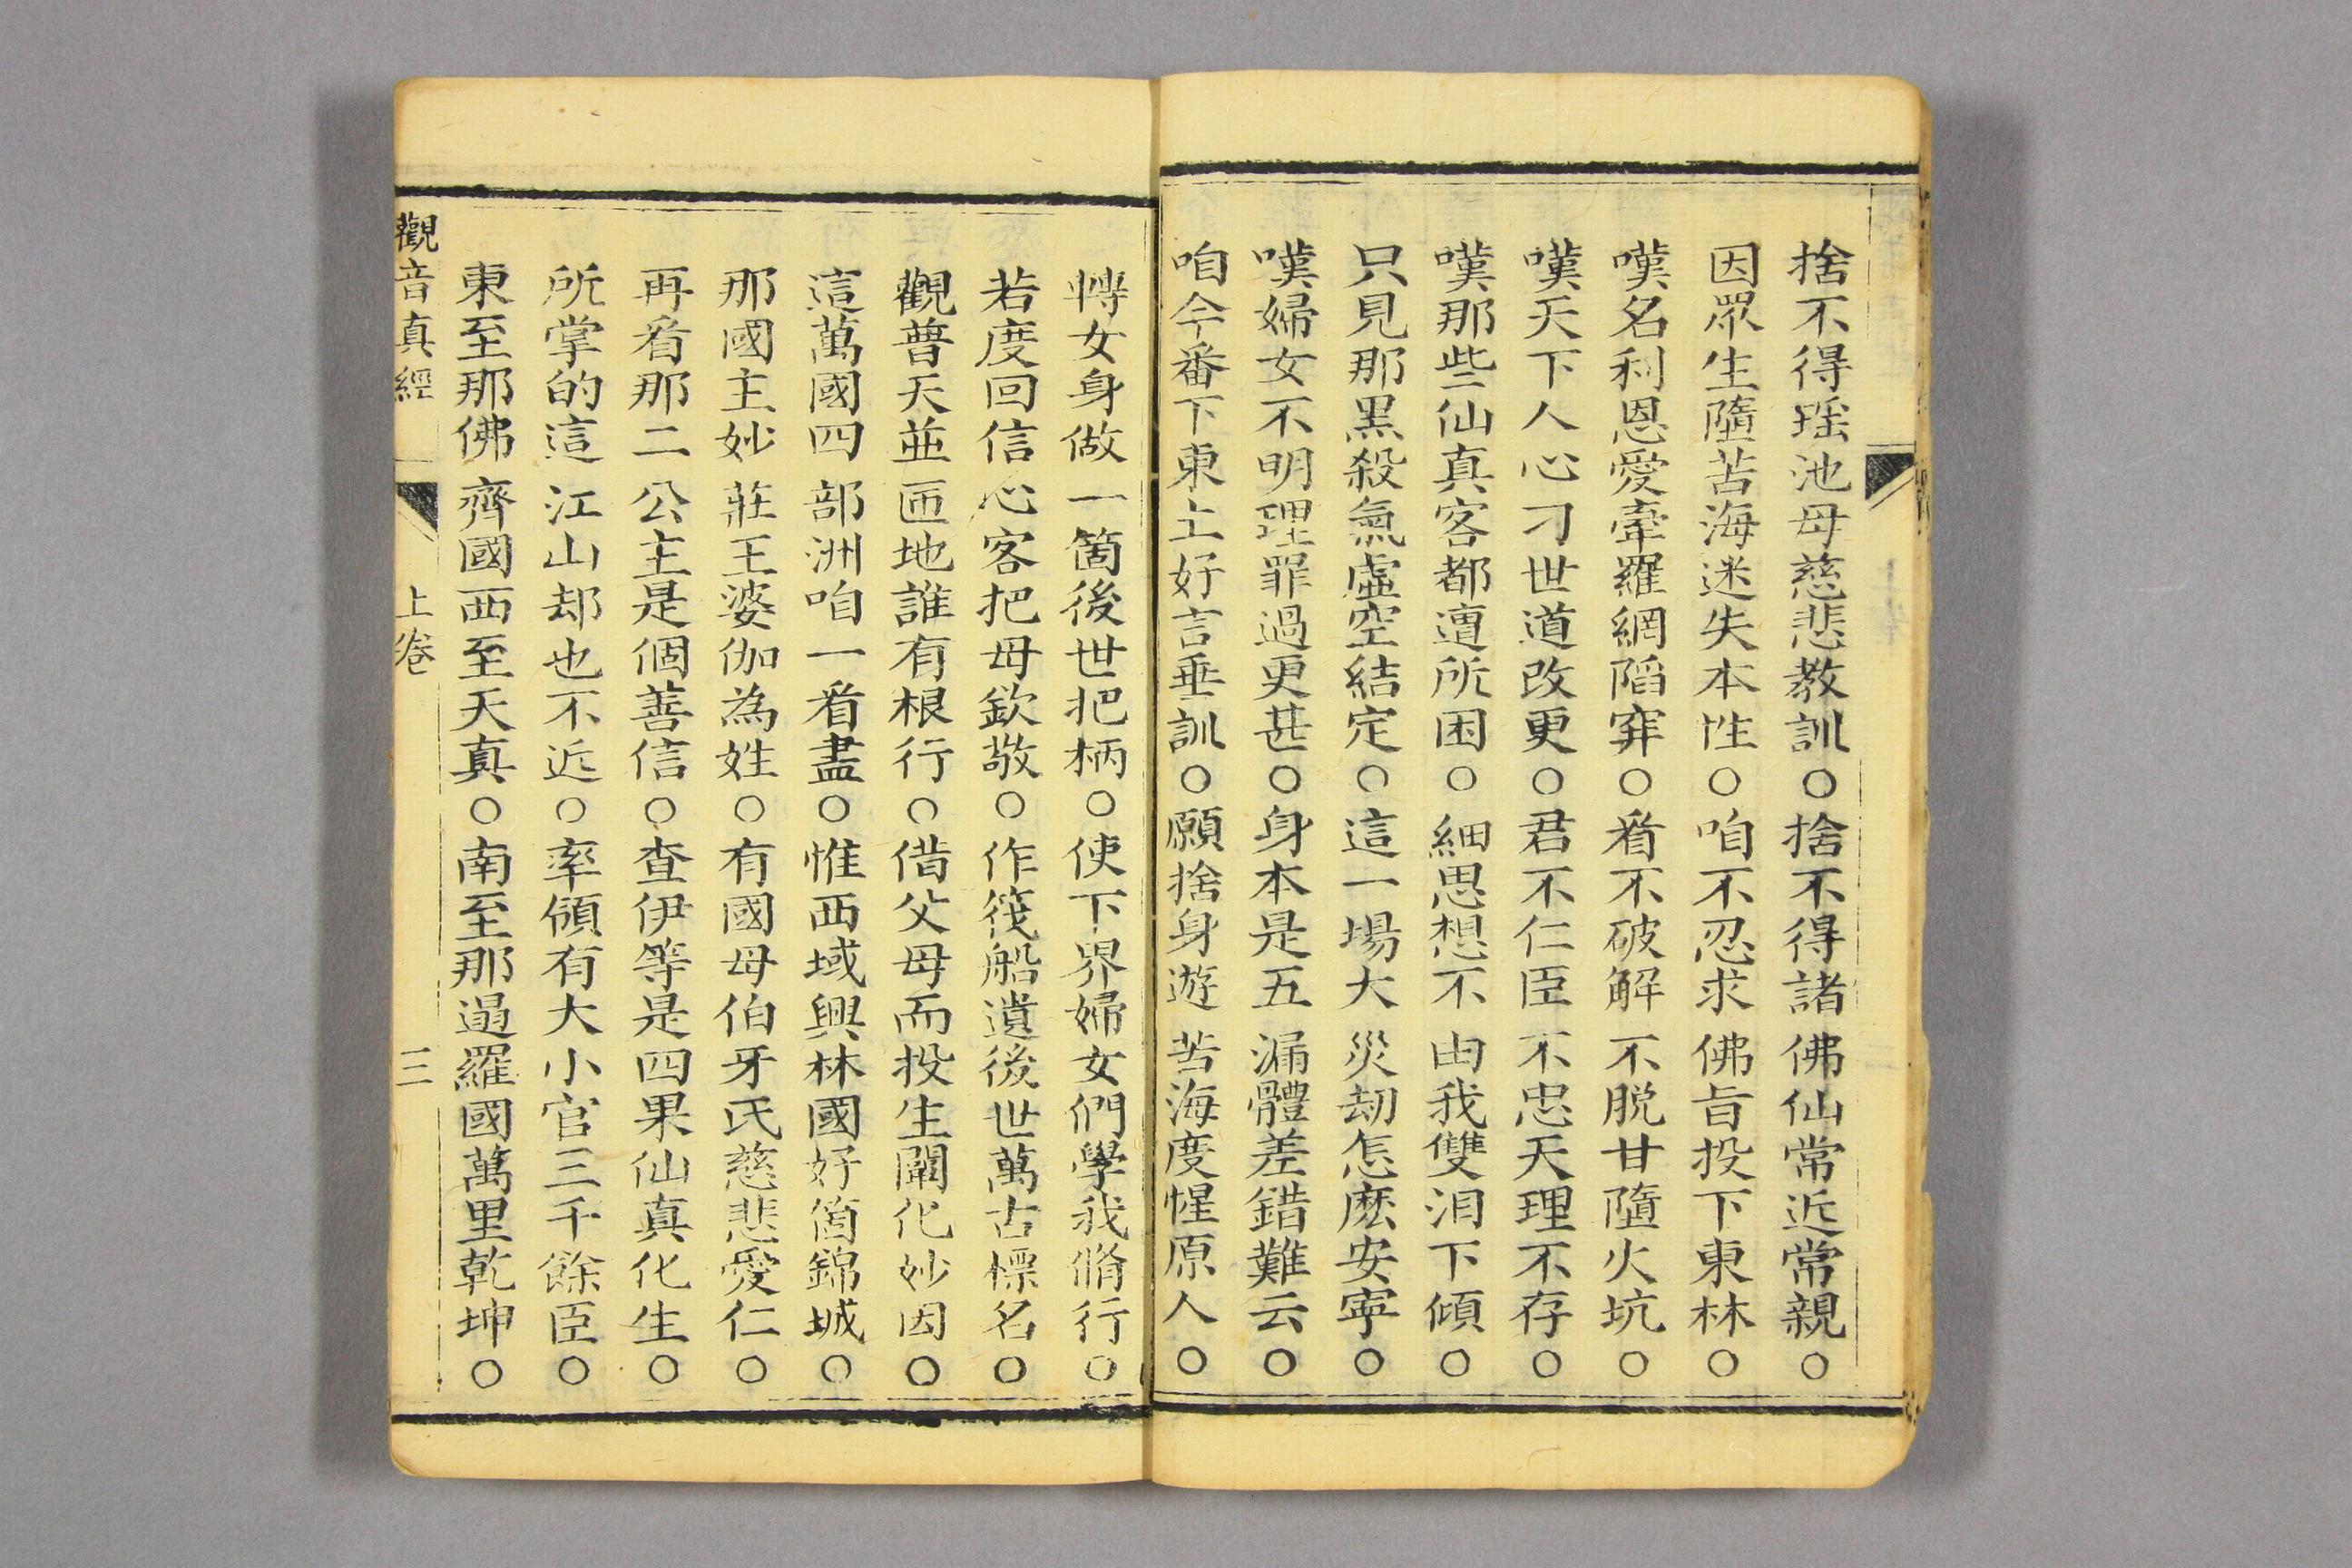 捨不得瑶池母慈悲教訓○捨不得諸佛仙常近常親○
因眾生墮苦海迷失本性○咱不忍求佛旨投下東林○
嘆名利恩愛牽羅網陷穽○看不破解不脱甘墮火坑○
嘆天下人心刁世道改更○君不仁臣不忠天理不存○
嘆那些仙真客都遭所困○細思想不由我雙泪下傾○
只見那黑殺氣虛空結定○這一場大災劫怎麽安寕○
嘆婦女不明理罪過更甚○身本是五漏體差錯難云○
咱今番下東土好言垂訓○願捨身遊苦海度惺原人○
轉女身做一箇後世把柄○使下界婦女們學我脩行○
若度回信心客把母欽敬○作筏船遺後世萬古標名○
觀普天並匝地誰有根行○借父母而投生闡化妙因○
這萬國四部洲咱一看盡○惟西域興林國好箇錦城○
那國主妙莊王婆伽為姓○有國母伯牙氏慈悲愛仁○
再看那二公主是個善信○查伊等是四果仙真化生○
所掌的這江山却也不近○率領有大小官三千餘臣○
東至那佛齊國西至天真○南至那暹羅國萬里乾坤○
觀音真經 上卷 三